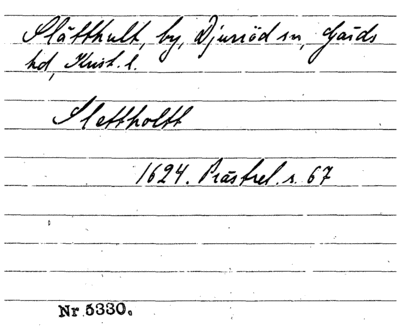 Slätthult, by, Djuröd sn, Gärds
hd, Krist. l.
Slettholtt
1624. Prästrel. s. 67
Nr 5330.